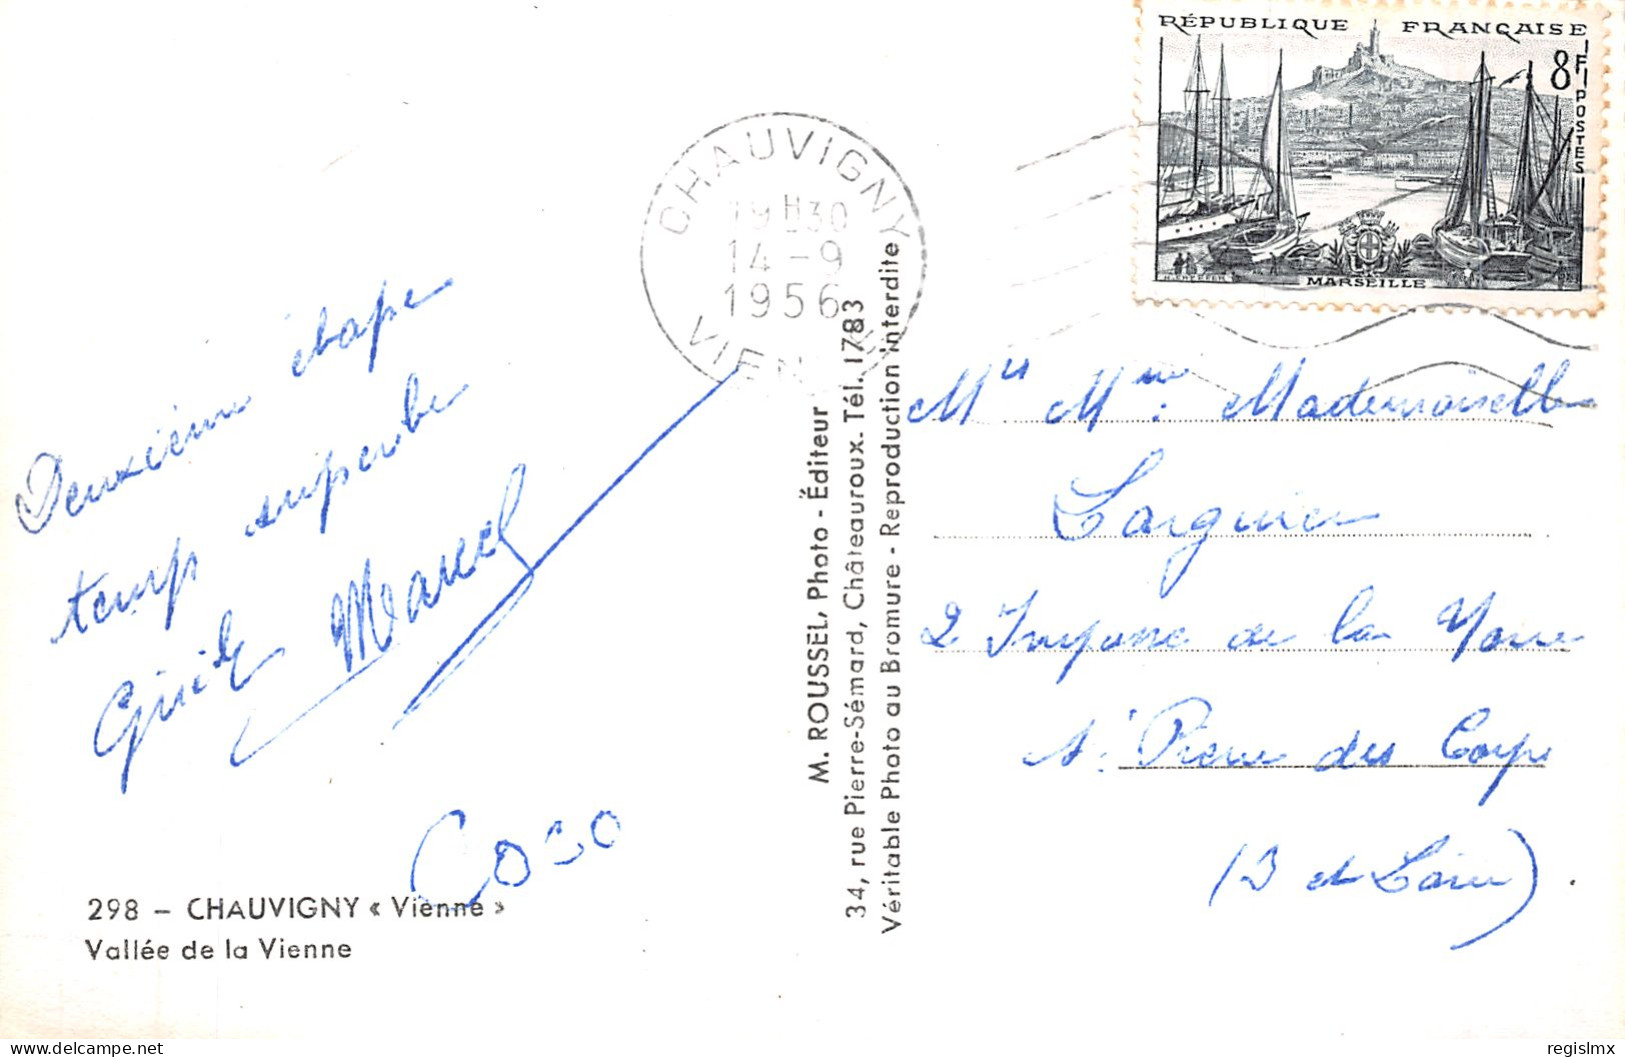 RÉPUBLIQUE FRANÇAISE
8F
POSTES
MARSEILLE
CHAUVIGNY
19H30
14-9
1956
VIENNE
Deuxième étape
temp superbe
Marcel
Coco
298 - CHAUVIGNY « Vienne »
Vallée de la Vienne
M. ROUSSEL, Photo - Éditeur
34, rue Pierre-Sémard, Châteauroux. Tél. 1783
Véritable Photo au Bromure - Reproduction interdite
Mrs Mme Mademoiselle
Larguier
2 Impasse de la
St Pierre des Corps
(I et Loire)
delcampe.net
regislmx